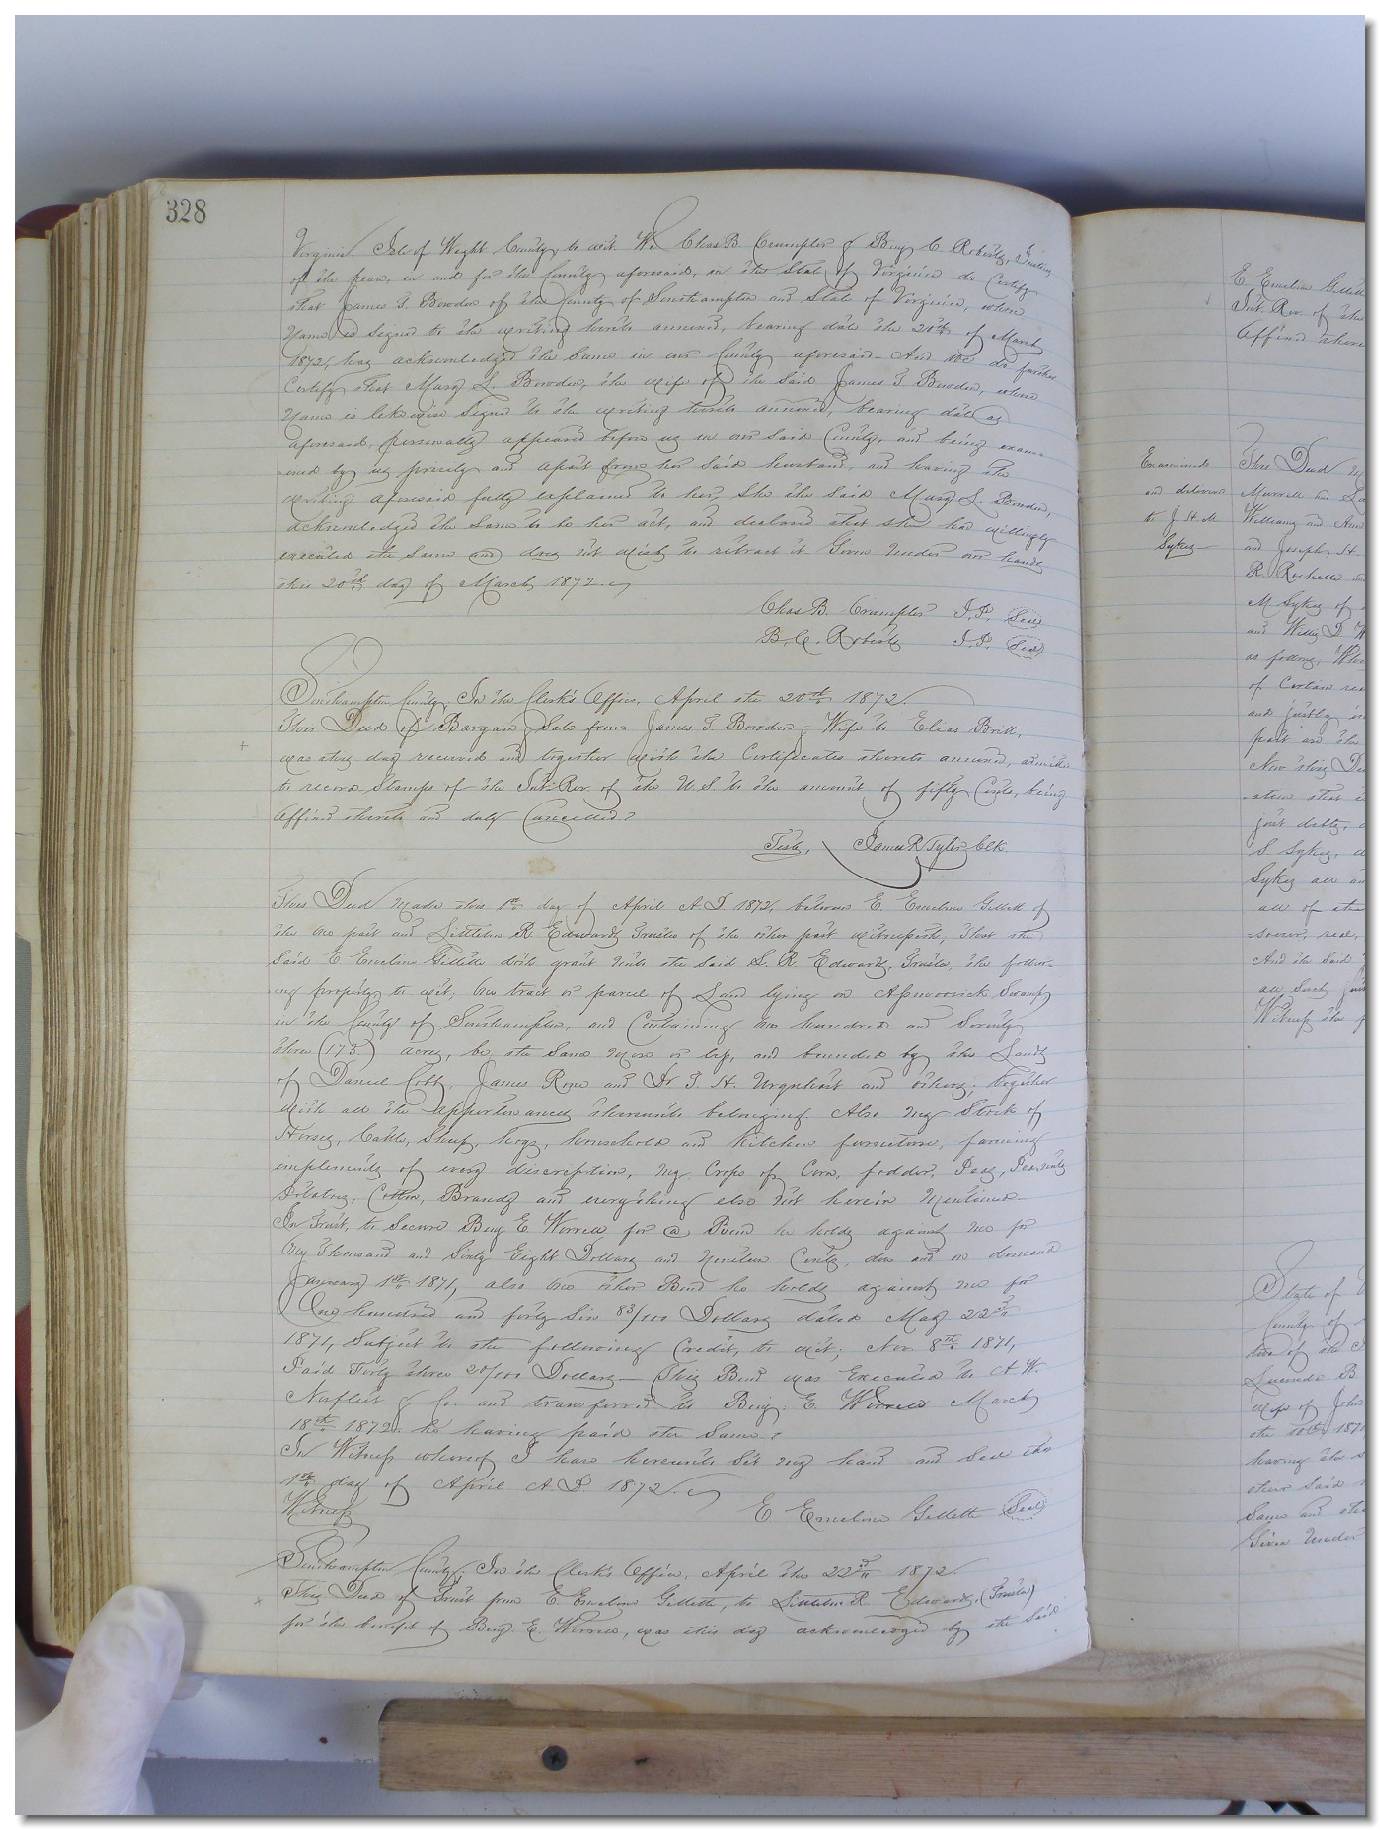 328
Virginia Isle of Wight County, to wit. We Chas B. Crumpler & Benj C. Roberts, Justices
of the peace, in and for the County aforesaid, in the State of Virginia do Certify
that James T. Bowden of the County of Southampton and State of Virginia, whose
Name is signed to the writing hereto annexed, bearing date the 20th of March
1872, has acknowledged the Same in our County aforesaid. And we do further
Certify that Mary L. Bowden, the wife of the Said James T Bowden, whose
Name is likewise Signed to the writing hereto annexed, bearing date as
aforesaid, personally appeared before us in our Said County, and being exam-
-ined by us privily and apart from her Said husband, and having the
writing aforesaid fully explained to her, She the Said Mary L. Bowden,
acknowledged the Same to be her act, and declared that she had willingly
executed the Same and does not wish to retract it Given Under our hands
this 20th day of March 1872.
Chas B. Crumpler J.P. Seal
B. C. Roberts J.P. Seal
Southampton County, In the Clerk's Office, April the 20th 1872.
This Deed of Bargain & Sale from James T Bowden & Wife to Elias Britt,
was this day received and together with the Certificates thereto annexed, admitted
to record Stamps of the Int. Rev. of the U.S. to the amount of fifty Cents, being
Affixed thereto and duly Cancelled.
Teste, James R Tyler Clk.
This Deed Made this 1st day of April A D 1872, between E. Emeline Gillett of
the one part and Littleton R. Edwards Trustee of the other part witnesseth, That the
Said E Emeline Gillette doth grant Unto the Said L. R. Edwards, Trustee, the follow-
-ing property to wit; One tract or parcel of Land lying on Assamoosick Swamp
in the County of Southampton, and Containing One hundred and Seventy
three (173) acres, be the Same More or less, and bounded by the Lands
of Daniel Cobb, James Rose and Dr T. H. Urquhart and others; together
with all the appurtenances thereunto belonging. Also My Stock of
Horses, Cattle, Sheep, hogs, household and kitchen furniture, farming
implements of every discreption, My Crops of Corn, fodder, Peas, Peanuts
Potatoes, Cotton, Brandy and everything else Not herein Mentioned
In Trust, to Secure Benj E. Worrell for a Bond he holds against me for
One Thousand and Sixty Eight Dollars and Nineteen Cents, due and on demand
January 1st 1871, also One other Bond he holds against me for
One hundred and forty Six 83/100 Dollars dated May 22nd
1871, Subject to the following Credit, to wit; Nov 8th 1871,
Paid Forty three 20/100 Dollars — This Bond was Executed to A. W.
Norfleet & Co. and transferred to Benj. E. Worrell March
18th 1872, he having paid the Same.
In Witness whereof I have hereunto Set my hand and Seal this
1st day of April A D 1872.
Witness
E Emeline Gillette Seal
Southampton County; In the Clerk's Office, April the 22nd 1872.
This Deed of Trust from E Emeline Gillette, to Littleton R Edwards, (Trustee)
for the benefit of Benj. E. Worrell, was this day acknowledged by the Said
E. Emeline Gillett
Int. Rev. of the
Affixed there
Examined
and delivered
to J. H. M
Sykes
This Deed
Williams and Ann
and Joseph. H
M Sykes of
as follows, Whe
of Certain rea
and justly in
part and the
Now this De
joint debts,
S Sykes,
Sykes all an
all of the
And the Said
all Such
Witness the
State of
County of
Lucinda B
wife of John
the 10th 1871
having the s
then Said
Same and the
Given Under